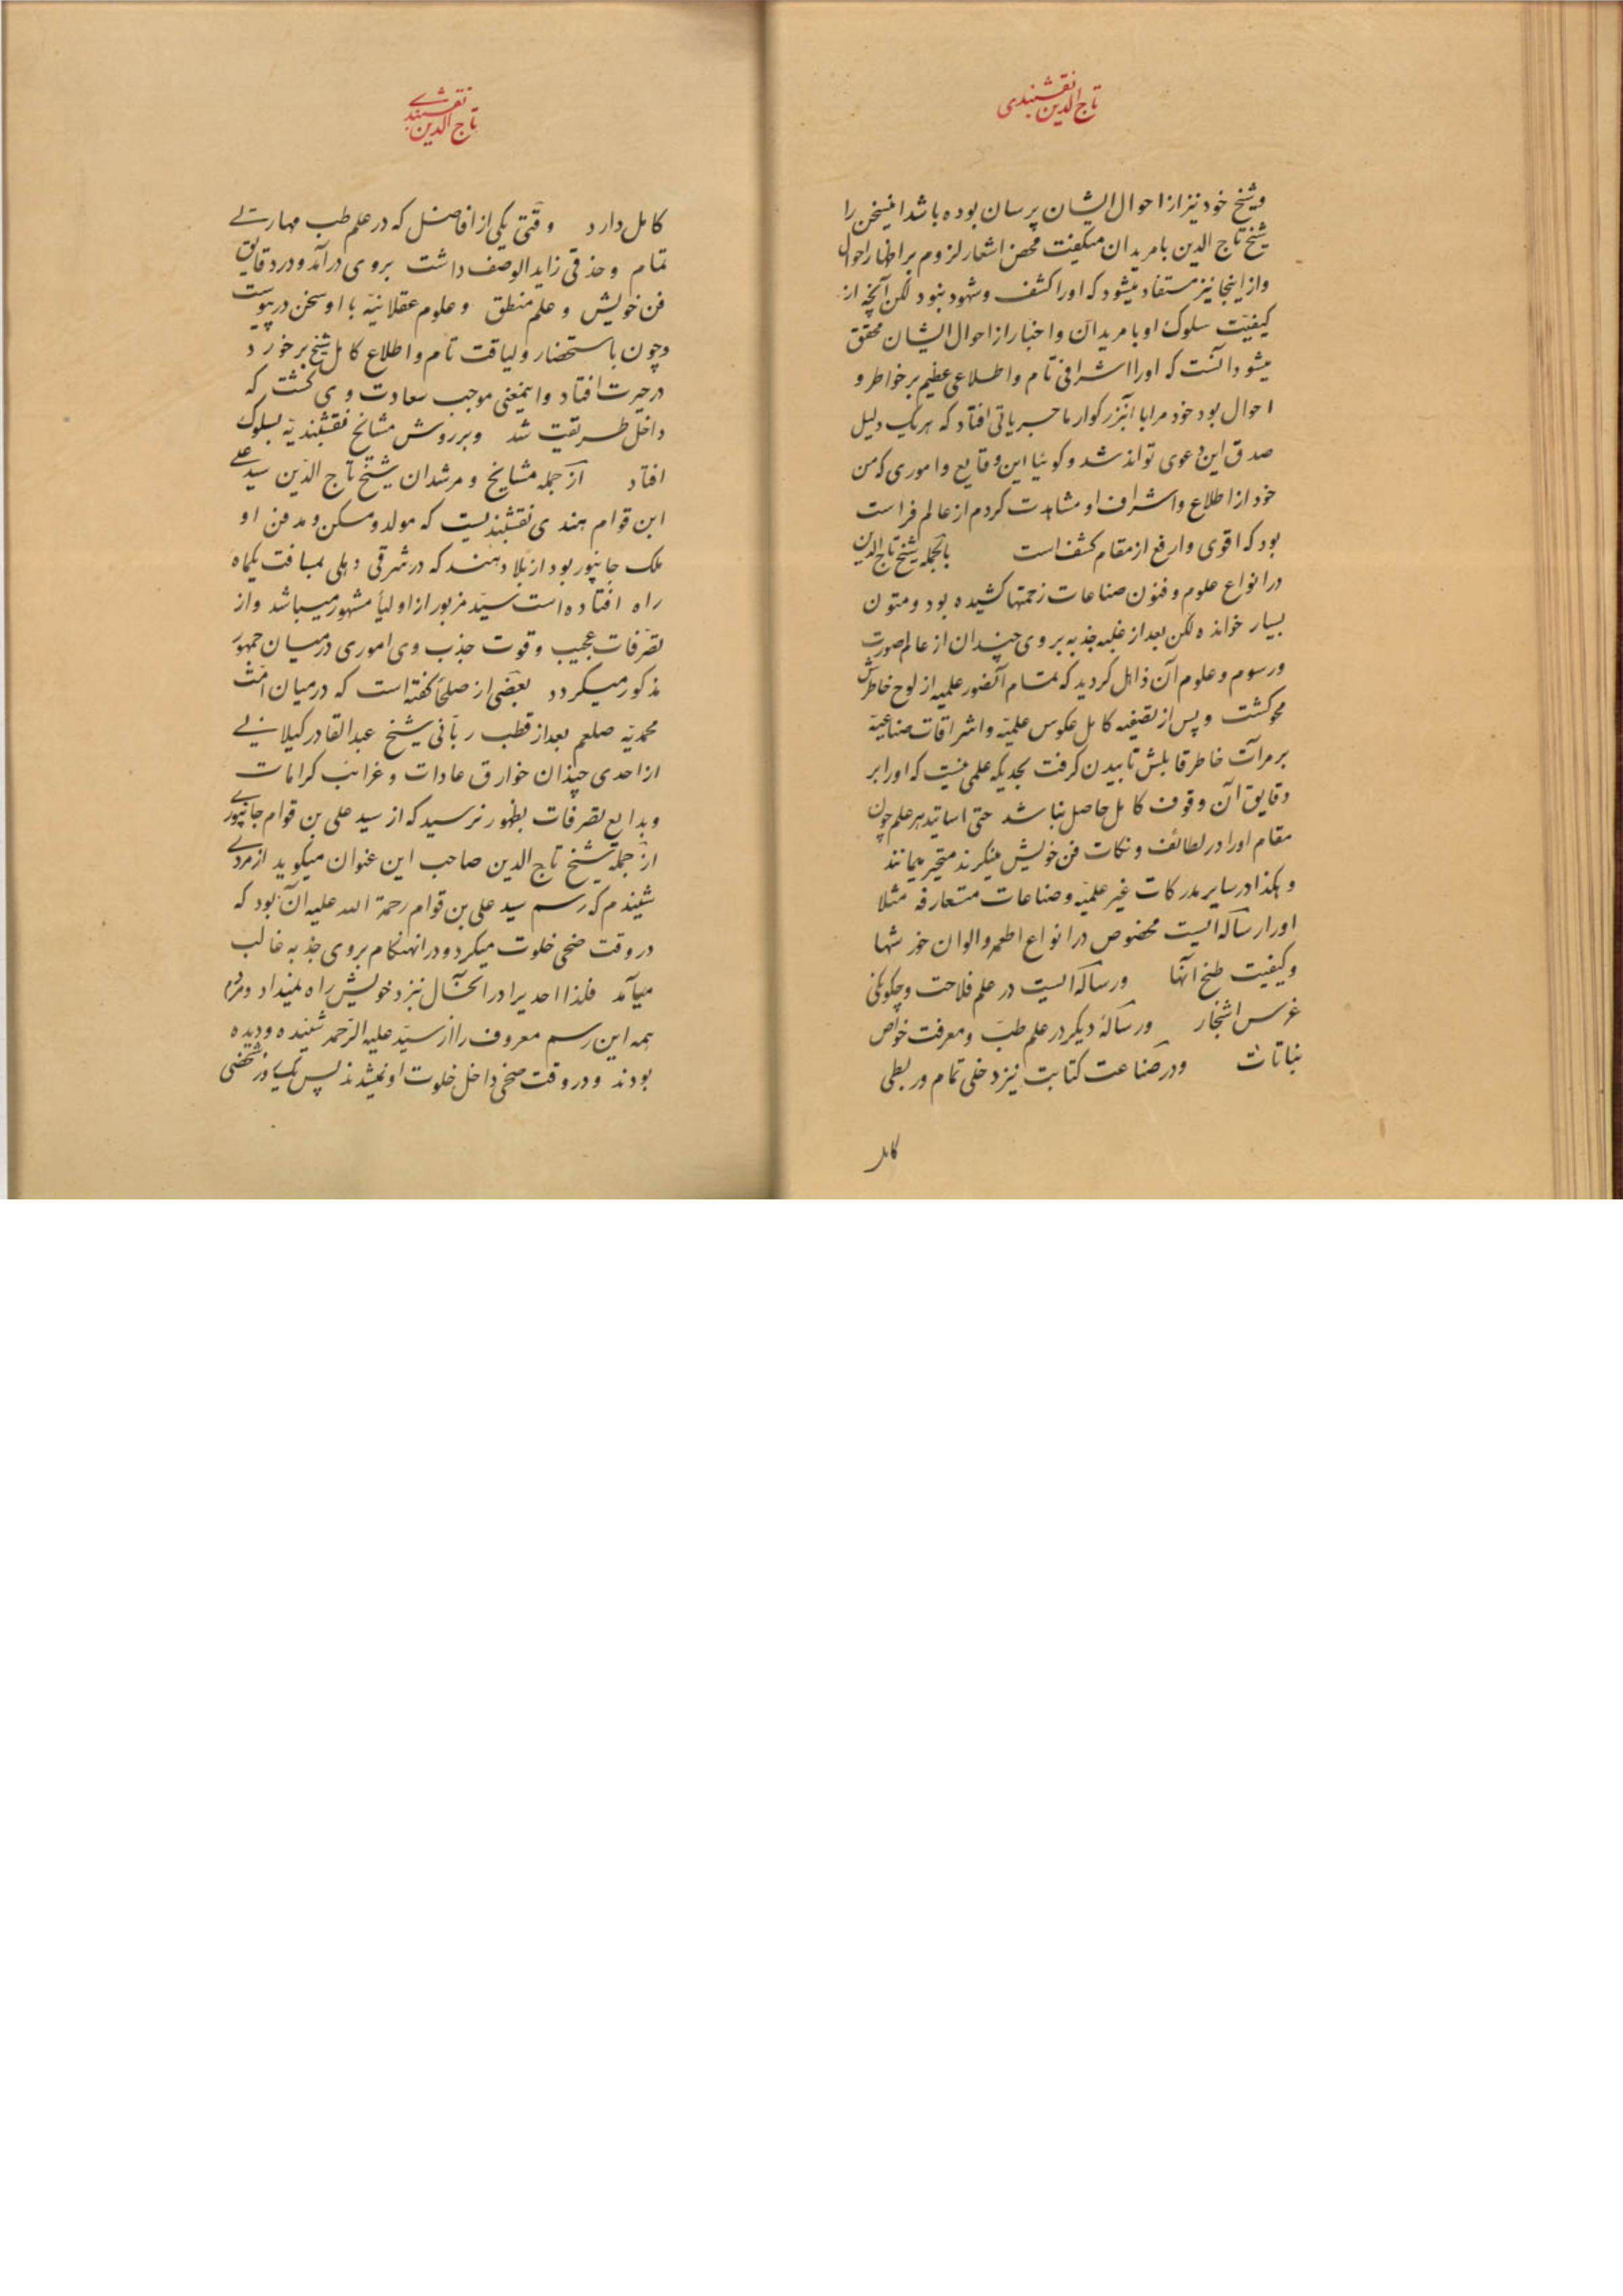 تاج الدین نقشبندی
و شیخ خود نیز از احوال ایشان پرسان بوده باشد اینسخن را
شیخ تاج الدین با مریدان میکفت محض اشعار لزوم بر اظهار احوال
و از اینجا نیز مستفاد میشود که اورا کشف و شهود نبود لکن آنچه از
کیفیّت سلوک او با مریدان و اخبار از احوال ایشان محقق
میشود آنست که اورا اشرافی تام و اطلاعی عظیم بر خواطر و
احوال بود خود مرا با آنبزرکوار ماجریاتی افتاد که هریک دلیل
صدق این دعوی تواند شد و کوئیا این وقایع و اموری که من
خود از اطلاع و اشراف او مشاهدت کردم از عالم فراست
بود که اقوی و ارفع از مقام کشف است بالجمله شیخ تاج الدین
در انواع علوم و فنون صناعات زحمتها کشیده بود و متون
بسیار خوانده لکن بعد از غلبه جذبه بر وی چندان از عالم صورت
و رسوم و علوم آن ذاهل کردید که تمام آنصور علمیه از لوح خاطرش
محو کشت و پس از تصفیه کامل عکوس علمیّه و اشراقات صناعیّه
بر مرآت خاطر قابلش تابیدن کرفت بحدیکه علمی نیست که اورا بر
دقایق آن وقوف کامل حاصل نباشد حتی اساتید هر علم چون
مقام اورا در لطائف و نکات فن خویش مینکرند متحیر میمانند
و هکذا در سایر مدرکات غیر علمیّه و صناعات متعارفه مثلا
اورا رساله ایست مخصوص در انواع اطعمه و الوان خورشها
و کیفیت طبخ آنها و رساله ایست در علم فلاحت و چکونکی
غرس اشجار و رسالهٔ دیکر در علم طبّ و معرفت خواص
نباتات و در صناعت کتابت نیز دخلی تمام و ربطی
کامل
تاج الدین نقشبندے
کامل دارد وقتی یکی از افاضل که در علم طب مهارتے
تمام و حذقی زاید الوصف داشت بر وی درآمد و در دقایق
فن خویش و علم منطق و علوم عقلانیّه با او سخن درپیوست
و چون با استحضار و لیاقت تام و اطلاع کامل شیخ برخورد
در حیرت افتاد و اینمعنی موجب سعادت وی کشت که
داخل طریقت شد و بر روش مشایخ نقشبندیّه بسلوک
افتاد از جمله مشایخ و مرشدان شیخ تاج الدّین سید علے
ابن قوام هندی نقشبندیست که مولد و مسکن و مدفن او
ملک جانپور بود از بلاد هند که در شرقی دهلی بمسافت یکماه
راه افتاده است سیّد مزبور از اولیا مشهور میباشد و از
تصرّفات عجیب و قوت جذب وی اموری در میان جمهور
مذکور میکردد بعضی از صلحا کفته است که در میان امّت
محمدیّه صلعم بعد از قطب ربّانی شیخ عبد القادر کیلانے
از احدی چندان خوارق عادات و غرائب کرامات
و بدایع تصرفات بظهور نرسید که از سید علی بن قوام جانپورے
از جمله شیخ تاج الدین صاحب این عنوان میکوید از مردے
شنیدم که رسم سید علی بن قوام رحمة الله علیه آن بود که
در وقت ضحی خلوت میکرد و در انهنکام بر وی جذبه غالب
میآمد فلذا احدیرا در انحال نزد خویش راه نمیداد و مردم
همه این رسم معروف را از سیّد علیه الرّحمه شنیده و دیده
بودند و در وقت ضحی داخل خلوت او نمیشدند پس یک روز شخصی